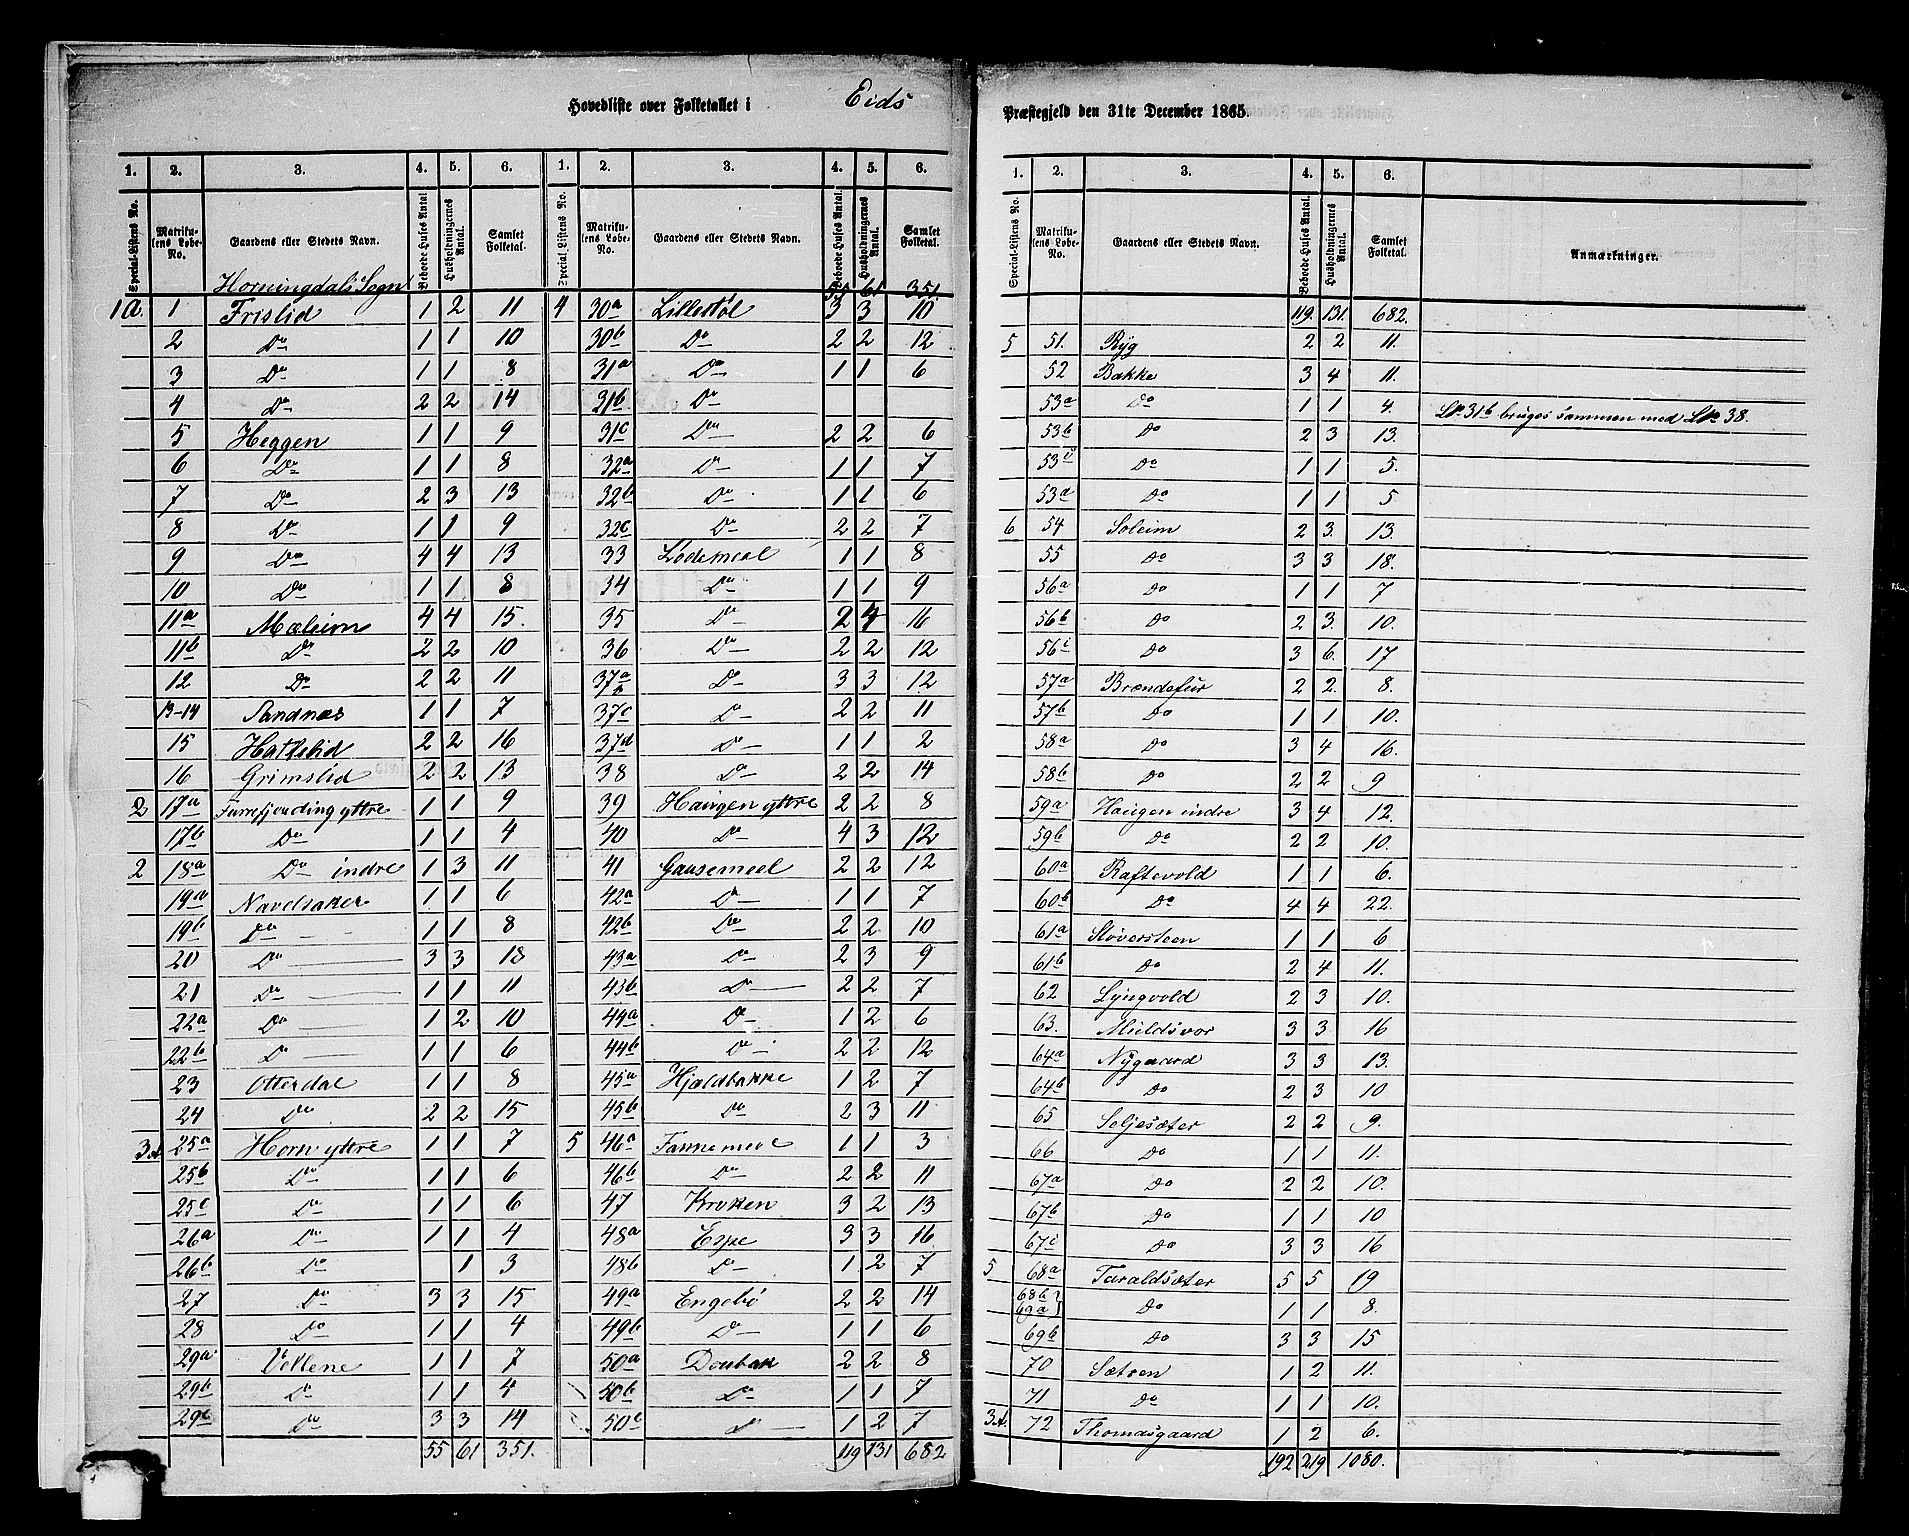 Hovedliste over Folketallet i Eids
1. 2. 3. 4. 5. 6. 1. 2. 3. 4. 5. 6.
Special-Listens No. Matrikulens Løbe-No. Gaardens eller Stedets Navn. Beboede Huses Antal Husholdningernes Antal. Samlet Folketal. Special-Listens No. Matrikulens Løbe-No. Gaardens eller Stedets Navn. Beboede Huses Antal. Husholdningernes Antal. Samlet Folketal.
Horningdals Sogn 55 61 351.
1a. 1 Frislid 1 2 11 4 30a Lillestøl 3 3 10
2 Do 1 1 10 30b Do 2 2 12
3 Do 1 1 8 31a Do 1 1 6
4 Do 2 2 14 31b Do
5 Heggen 1 1 9 31c Do 2 2 6
6 Do 1 1 8 32a Do 1 1 7
7 Do 2 3 13 32b Do 1 1 6
8 Do 1 1 9 32c Do 2 2 7
9 Do 4 4 13 33 Lødemeel 1 1 8
10 Do 1 1 8 34 Do 1 1 9
11a Mæleim 4 4 15. 35 Do 2 4 16
11b Do 2 2 10 36 Do 2 2 12
12 Do 2 2 11 37a b Do 3 3 12
13-14 Sandnæs 1 1 7 37c Do 2 2 11
15 Hattelid 2 2 16 37d Do 1 1 2
16 Grimslid 2 2 13 38 Do 2 2 14
2 17a Furrefjending yttre 1 1 9 39 Haugen yttre 2 2 8
17b Do 1 1 4 40 Do 4 3 12
2 18a Do indre 1 3 11 41 Gausemeel 2 2 12
19a Navelsaker 1 1 6 42a Do 1 1 7
19b Do 1 1 8 42b Do 2 2 10
20 Do 3 3 18 43a Do 2 3 9
21 Do 1 1 11 43b Do 2 2 7
22a Do 1 2 10 44a Do 1 2 6
22b Do 1 1 6 44b Do 2 2 12
23 Otterdal 1 1 8 45a Hjaldbakke 1 2 7
24 Do 2 2 15 45b Do 2 3 11
3A 25a Horn yttre 1 1 7 5 46a Fannemeel 1 1 3
25b Do 1 1 6 46b Do 2 2 11
25c Do 1 1 6 47 Kroken 3 2 13
26a Do 1 1 4 48a Espe 3 3 16
26b Do 1 3 48b Do 1 2 7
27 Do 3 3 15 49a Engebø 2 2 14
28 Do 1 1 4 49b Do 1 1 6
29a Vellene 1 1 7 50a Doubak 2 2 8
29b Do 1 1 4 50b Do 1 1 7
29c Do 3 3 14 50c Do 1 2 7
55 61 351. 119 131 682
Præstegjeld den 31te December 1865.
1. 2. 3. 4. 5. 6.
Special-Listens No. Matrikulens Løbe-No. Gaardens eller Stedets Navn. Beboede Huses Antal. Husholdningernes Antal. Samlet Folketal. Anmærkninger.
119. 131. 682.
5 51. Ryg 2 2 11.
52 Bakke 3 4 11.
53a Do 1 1 4. Lno 31b bruges sammen med Lno 38.
53b Do 2 3 13.
53c Do 1 1 5.
53d Do 1 1 5
6 54 Soleim 2 3. 13.
55 Do 3 3 18.
56a Do 1 1 7
56b Do 2 3. 10.
56c Do 3 6. 17
57a Brændefur 2 2. 8.
57b Do 1 1 10.
58a Do 3 4 16.
58b Do 2 2 9
59a Haugen indre 3 4 12.
59b Do 2 2 10.
60a Raftevold 1 1 6.
60b Do 4 4 22.
61a Støversteen 1 1 6
61b Do 2 4 11.
62 Lyngvold 2 3 10.
63. Muldsvor 3 3 16
64a Nygaard 3 3 13.
64b Do 2 3 10
65 Seljesæter 2 2 9.
66 Do 1 1 11.
67a Do 2 2 10.
67b Do 1 1 10
67c Do 3 3 16
5 68a Taraldsæter 5 5 19
68b 69a Do 1 1 8.
69b Do 3 3 15
70 Sætren 1 2 11.
71 Do 1 1 10.
3A. 72 Thomasgaard 1 2 6.
192 219 1080.